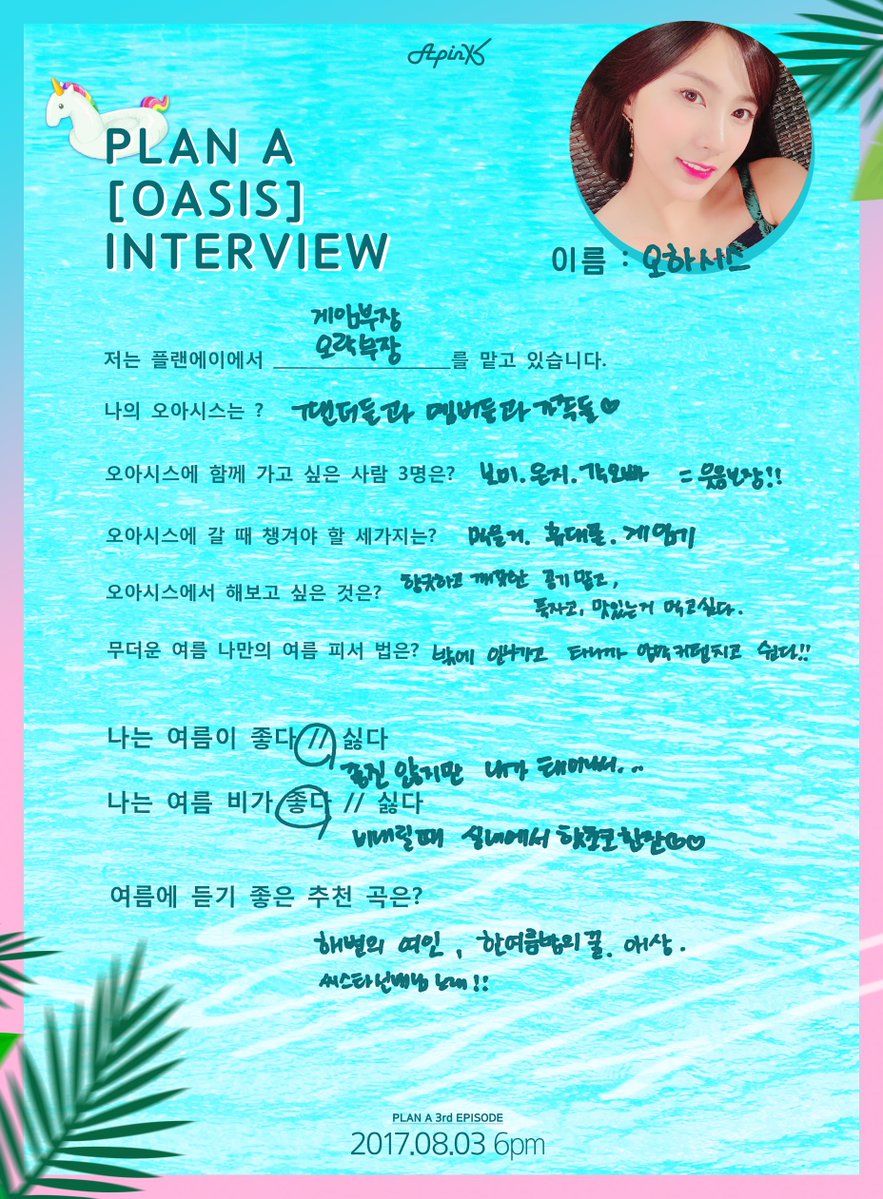 Apink
PLAN A
[OASIS]
INTERVIEW
이름 : 오하시스
게임부장
오락부장
저는 플랜에이에서 ______________를 맡고 있습니다.
나의 오아시스는 ? 팬더들과 멤버들과 가족들♡
오아시스에 함께 가고 싶은 사람 3명은? 보미.은지.각오빠 = 웃음보장!!
오아시스에 갈 때 챙겨야 할 세가지는? 먹을거. 휴대폰. 게임기
오아시스에서 해보고 싶은 것은? 향긋하고 깨끗한 공기 맡고,
푹자고, 맛있는거 먹고싶다.
무더운 여름 나만의 여름 피서 법은? 밖에 안나가고 암막커텐치고 쉰다!!
나는 여름이 좋다 // 싫다
좋진 않지만 내가 태어나서..
나는 여름 비가 좋다 // 싫다
비내릴때 실내에서 핫초코한잔♡♡
여름에 듣기 좋은 추천 곡은?
해변의 여인, 한여름밤의 꿀. 애상.
씨스타선배님 노래!!
PLAN A 3rd EPISODE
2017.08.03 6pm